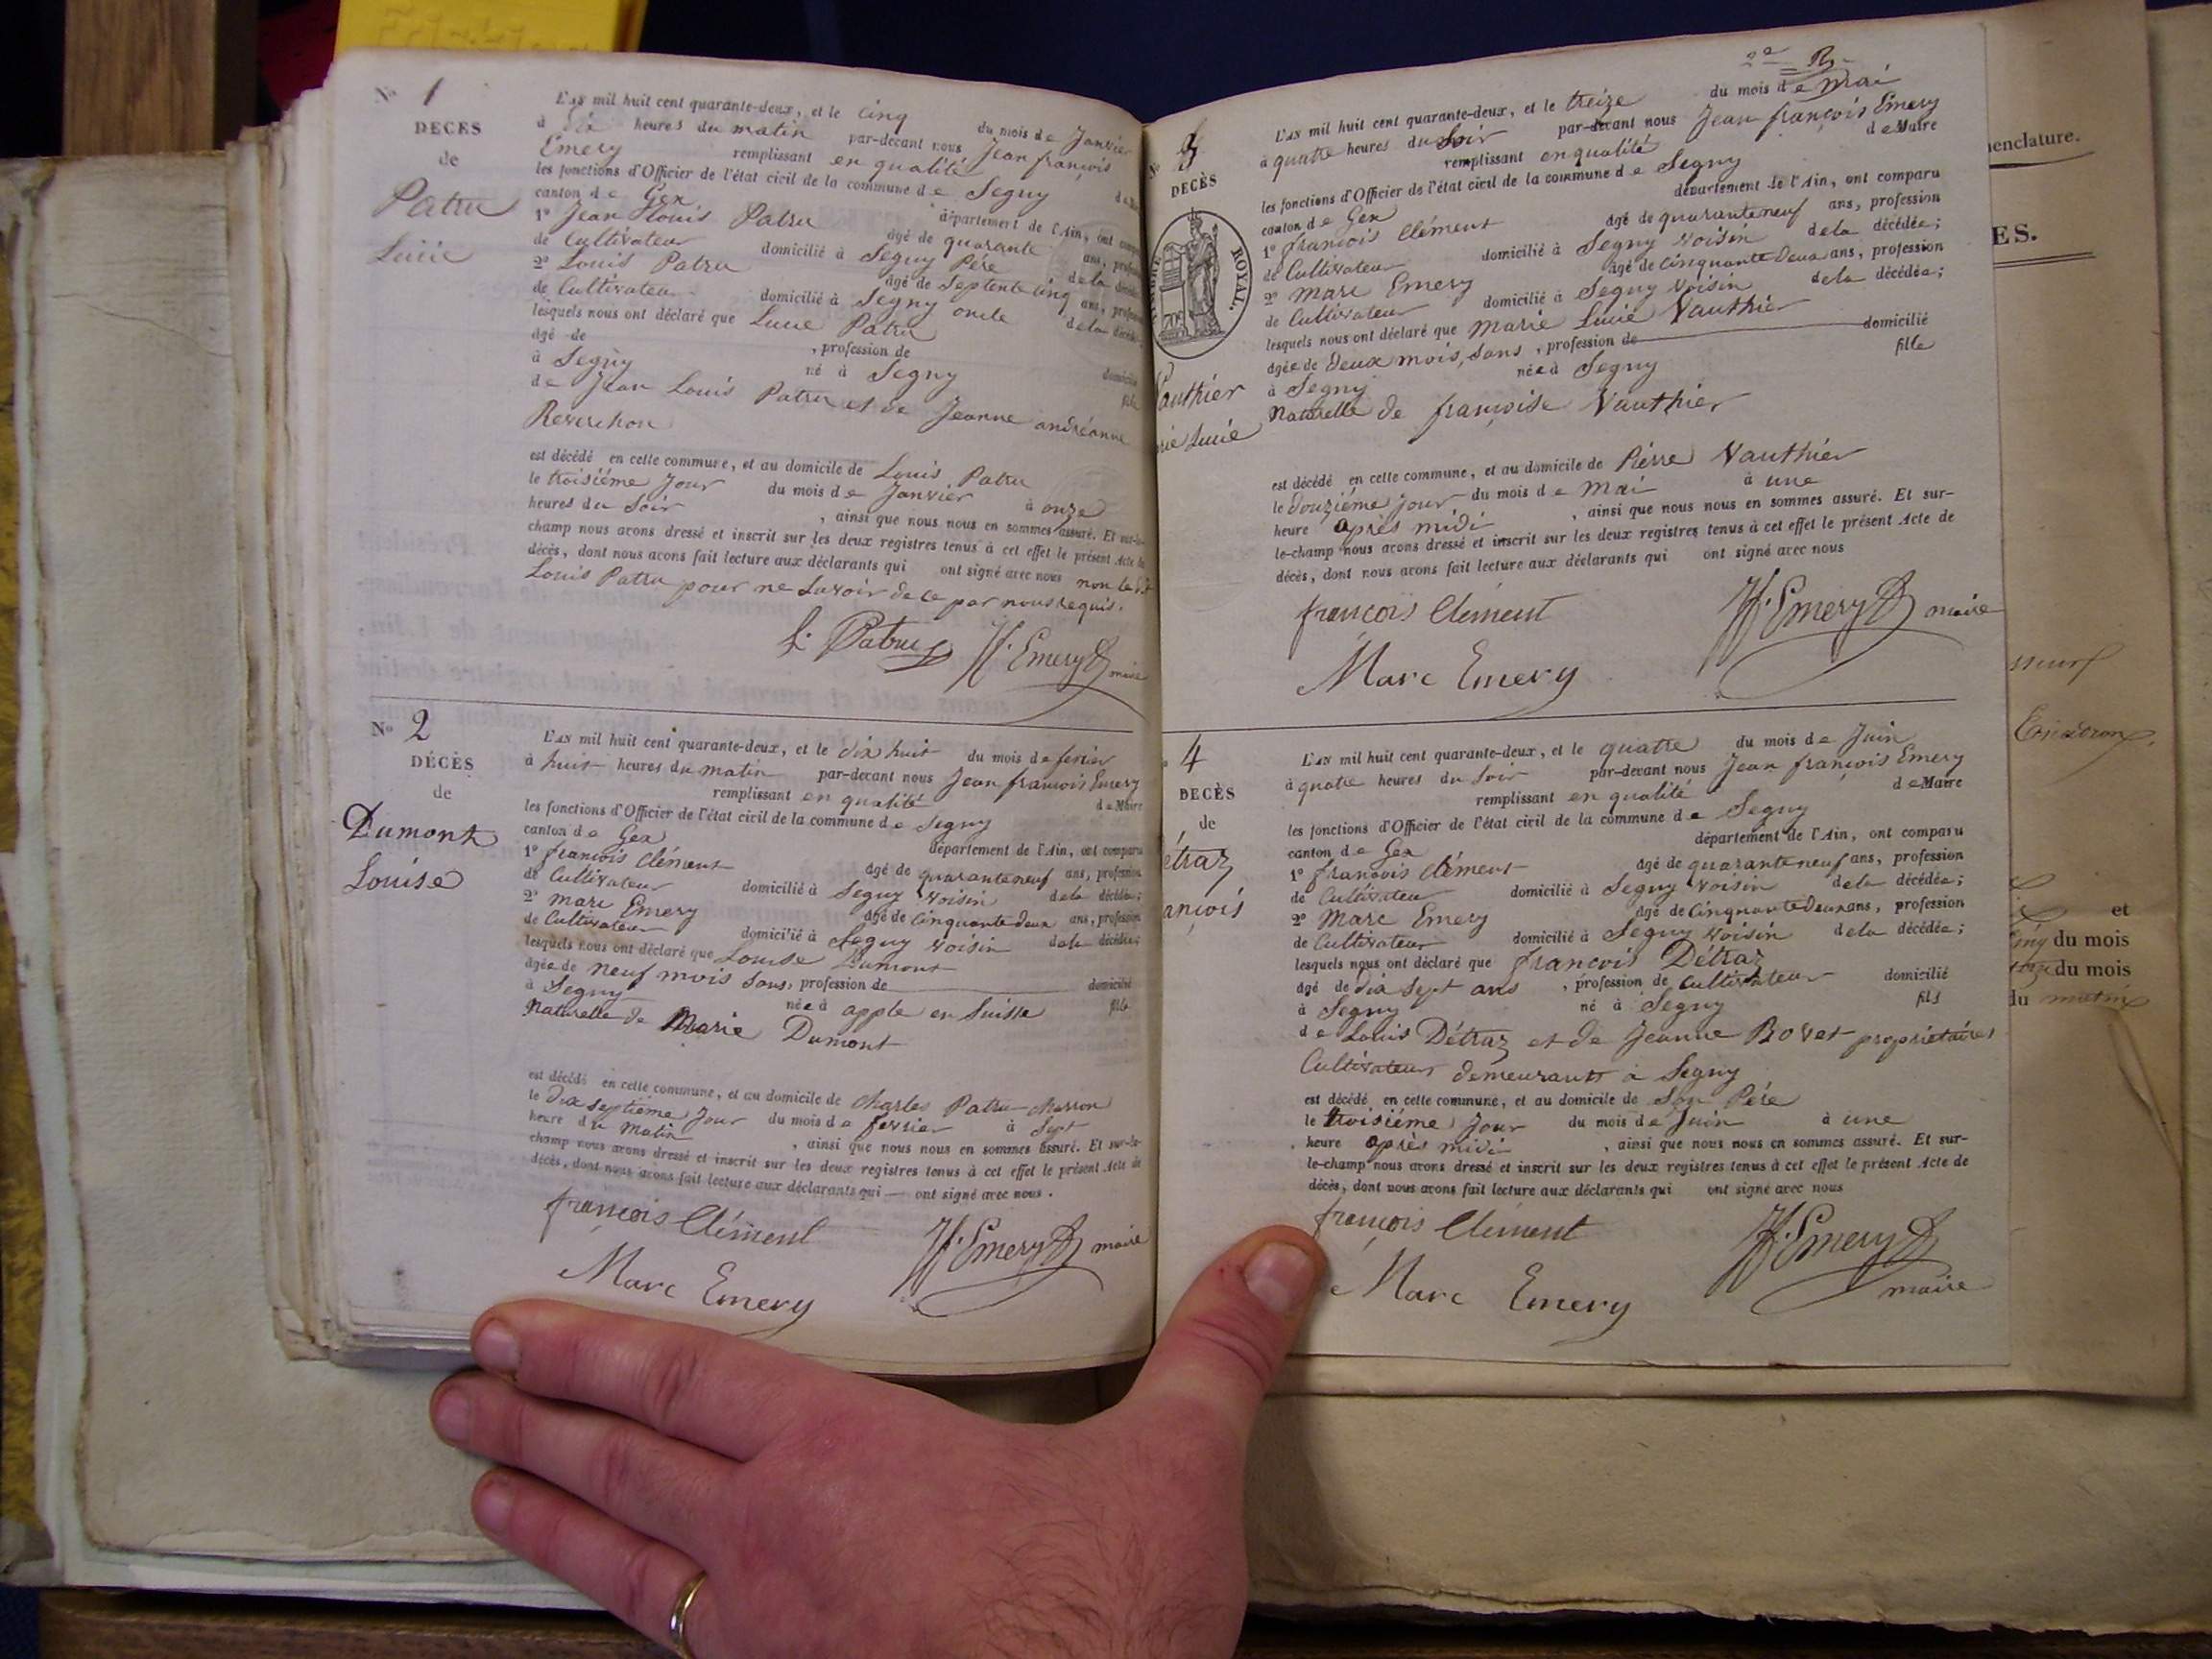 N° 1
DÉCÈS
de
Patru
Lucie
L'AN mil huit cent quarante-deux, et le cinq du mois de Janvier
à dix heures du matin par-devant nous Jean françois
Emery remplissant en qualité
les fonctions d'Officier de l'état civil de la commune de Segny
canton de Gex département de l'Ain, ont comparu
1° Jean Louis Patru âgé de quarante ans, profession
de Cultivateur domicilié à Segny Père de la décédée
2° Louis Patru âgé de septente cinq ans, profession
de Cultivateur domicilié à Segny oncle de la décédée
lesquels nous ont déclaré que Lucie Patru
âgé de , profession de
à Segny né à Segny domicilié
de Jean Louis Patru et de Jeanne andréanne fille
Reverchon
est décédé en cette commune, et au domicile de Louis Patru
le troisième Jour du mois de Janvier à onze
heures du Soir , ainsi que nous nous en sommes assuré. Et sur-le-
champ nous avons dressé et inscrit sur les deux registres tenus à cet effet le présent Acte de
décès, dont nous avons fait lecture aux déclarants qui ont signé avec nous non le dit
Louis Patru pour ne Savoir de ce par nous requis.
L. Patru Jf. Emery maire
N° 2
DÉCÈS
de
Dumont
Louise
L'AN mil huit cent quarante-deux, et le dix huit du mois de fevrier
à huit heures du matin par-devant nous Jean françois Emery
remplissant en qualité de Maire
les fonctions d'Officier de l'état civil de la commune de Segny
canton de Gex département de l'Ain, ont comparu
1° françois Clément âgé de quaranteneuf ans, profession
de Cultivateur domicilié à Segny Voisin de la décédée;
2° Marc Emery âgé de Cinquante Deux ans, profession
de Cultivateur domicilié à Segny Voisin de la décédée;
lesquels nous ont déclaré que Louise Dumont
âgée de neuf mois Sans, profession de domicilié
à Segny née à apple en Suisse fille
Naturelle de Marie Dumont
est décédé en cette commune, et au domicile de Charles Patru-charron
le Dix Septième Jour du mois de fevrier à Sept
heure du Matin , ainsi que nous nous en sommes assuré. Et sur-le-
champ nous avons dressé et inscrit sur les deux registres tenus à cet effet le présent Acte de
décès, dont nous avons fait lecture aux déclarants qui — ont signé avec nous.
françois Clément Jf. Emery maire
Marc Emery
2e R.
3
DÉCÈS
TIMBRE ROYAL.
Vauthier
Marie Lucie
L'AN mil huit cent quarante-deux, et le treize du mois de Mai
à quatre heures du Soir par-devant nous Jean françois Emery
remplissant en qualité de Maire
les fonctions d'Officier de l'état civil de la commune de Segny
canton de Gex département de l'Ain, ont comparu
1° françois Clément âgé de quaranteneuf ans, profession
de Cultivateur domicilié à Segny Voisin de la décédée;
2° Marc Emery âgé de Cinquante Deux ans, profession
de Cultivateur domicilié à Segny Voisin de la décédée;
lesquels nous ont déclaré que Marie Lucie Vauthier
âgée de Deux mois, Sans , profession de domicilié
à Segny née à Segny fille
Naturelle de françoise Vauthier
est décédé en cette commune, et au domicile de Pierre Vauthier
le Douzième Jour du mois de Mai à une
heure après midi , ainsi que nous nous en sommes assuré. Et sur-
le-champ nous avons dressé et inscrit sur les deux registres tenus à cet effet le présent Acte de
décès, dont nous avons fait lecture aux déclarants qui ont signé avec nous
françois Clément Jf. Emery maire
Marc Emery
4
DÉCÈS
de
étraz
ançois
L'AN mil huit cent quarante-deux, et le quatre du mois de Juin
à quatre heures du Soir par-devant nous Jean françois Emery
remplissant en qualité de Maire
les fonctions d'Officier de l'état civil de la commune de Segny
canton de Gex département de l'Ain, ont comparu
1° françois Clément âgé de quaranteneuf ans, profession
de Cultivateur domicilié à Segny Voisin de la décédée;
2° Marc Emery âgé de Cinquante Deux ans, profession
de Cultivateur domicilié à Segny Voisin de la décédée;
lesquels nous ont déclaré que françois Détraz
âgé de dix Sept ans , profession de Cultivateur domicilié
à Segny né à Segny fils
de Louis Détraz et de Jeanne Bovet propriétaires
Cultivateurs demeurants à Segny
est décédé en cette commune, et au domicile de Son Père
le troisième Jour du mois de Juin à une
heure après midi , ainsi que nous nous en sommes assuré. Et sur-
le-champ nous avons dressé et inscrit sur les deux registres tenus à cet effet le présent Acte de
décès, dont nous avons fait lecture aux déclarants qui ont signé avec nous
françois Clément Jf. Emery
Marc Emery maire
enclature.
ES.
et
du mois
du mois
du matin